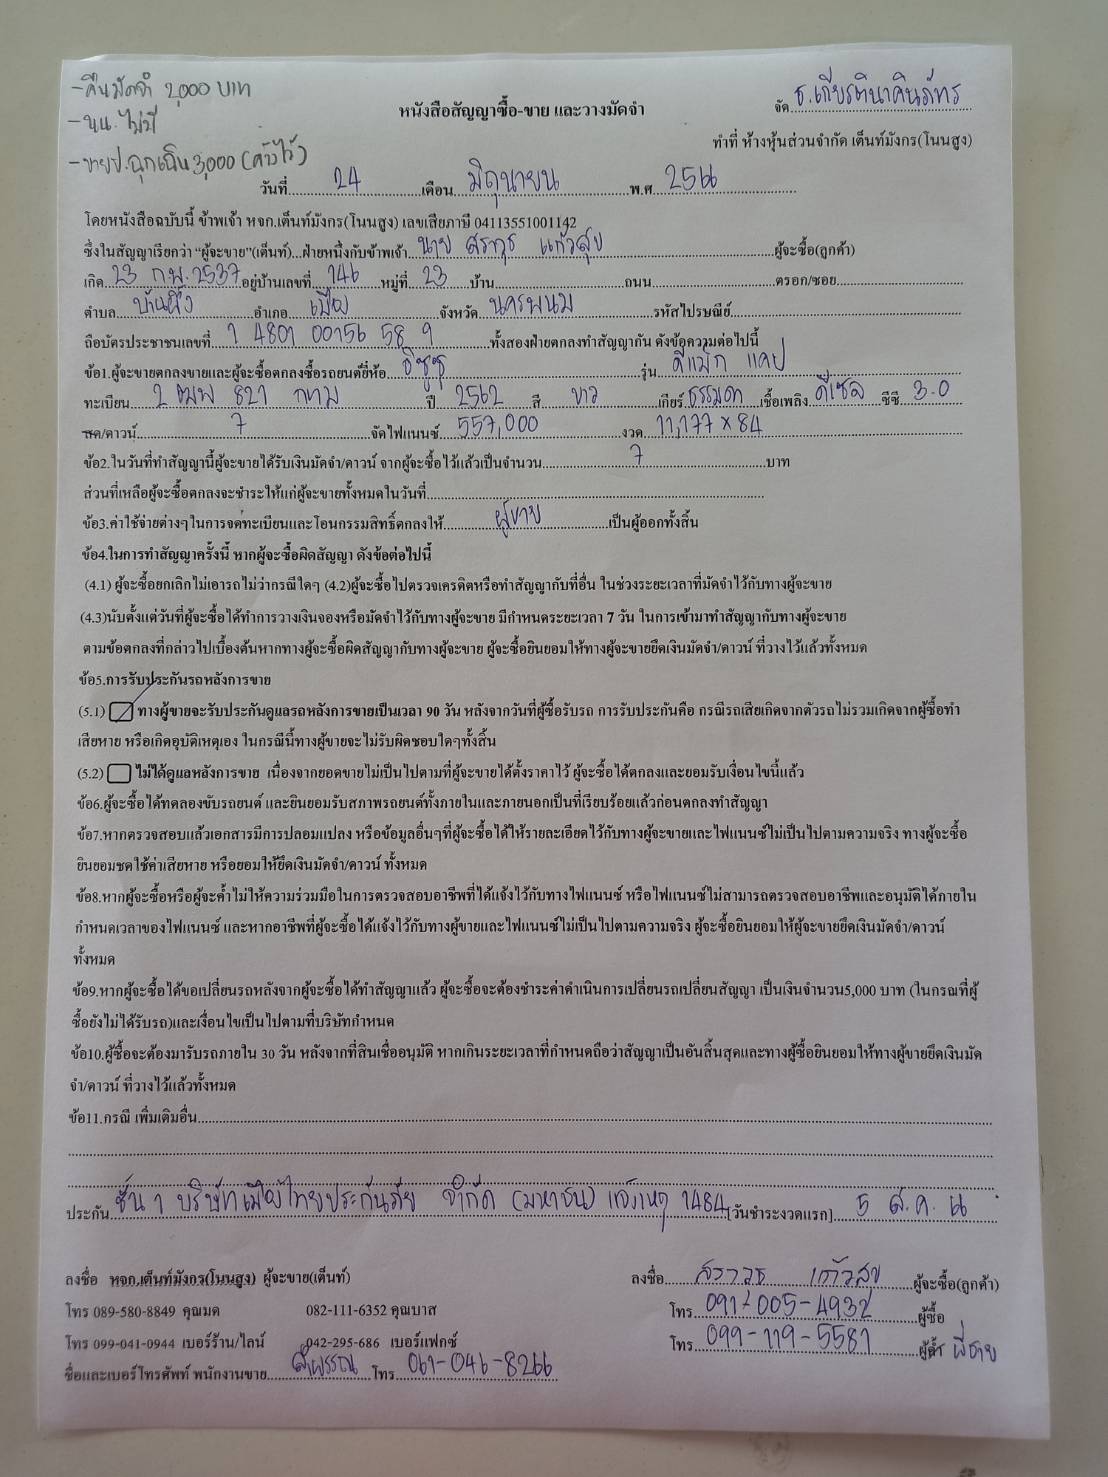 -คืนมัดจำ 2,000 บาท
-นน. ไม่มี
หนังสือสัญญาซื้อ-ขาย และวางมัดจำ
จัด ธ.เกียรตินาคินภัทร
ทำที่ ห้างหุ้นส่วนจำกัด เต็นท์มังกร(โนนสูง)
ฉุกเฉิน 3,000 (ค้างไว้)
วันที่ 24 เดือน มิถุนายน พ.ศ. 2566
โดยหนังสือฉบับนี้ ข้าพเจ้า หจก.เต็นท์มังกร(โนนสูง) เลขเสียภาษี 04113551001142
ซึ่งในสัญญาเรียกว่า "ผู้จะขาย"(เต็นท์)...ฝ่ายหนึ่งกับข้าพเจ้า นาย สราวุธ แก้วสุข ผู้จะซื้อ(ลูกค้า)
เกิด 23 ก.พ. 2537 อยู่บ้านเลขที่ 146 หมู่ที่ 23 บ้าน ถนน ตรอก/ซอย
ตำบล บ้านผึ้ง อำเภอ เมือง จังหวัด นครพนม รหัสไปรษณีย์
ถือบัตรประชาชนเลขที่ 1 4801 00156 58 9 ทั้งสองฝ่ายตกลงทำสัญญากัน ดังข้อความต่อไปนี้
ข้อ1.ผู้จะขายตกลงขายและผู้จะซื้อตกลงซื้อรถยนต์ยี่ห้อ อีซูซุ รุ่น ดีแม็ก แคป
ทะเบียน 2 ฒพ 821 กทม ปี 2562 สี ขาว เกียร์ ธรรมดา เชื้อเพลิง ดีเซล ซีซี 3.0
สด/ดาวน์ 7 จัดไฟแนนซ์ 557,000 งวด 11,177 x 84
ข้อ2.ในวันที่ทำสัญญานี้ผู้จะขายได้รับเงินมัดจำ/ดาวน์ จากผู้จะซื้อไว้แล้วเป็นจำนวน 7 บาท
ส่วนที่เหลือผู้จะซื้อตกลงจะชำระให้แก่ผู้จะขายทั้งหมดในวันที่
ข้อ3.ค่าใช้จ่ายต่างๆในการจดทะเบียนและโอนกรรมสิทธิ์ตกลงให้ ผู้ขาย เป็นผู้ออกทั้งสิ้น
ข้อ4.ในการทำสัญญาครั้งนี้ หากผู้จะซื้อผิดสัญญา ดังข้อต่อไปนี้
(4.1) ผู้จะซื้อยกเลิกไม่เอารถไม่ว่ากรณีใดๆ (4.2)ผู้จะซื้อไปตรวจเครดิตหรือทำสัญญากับที่อื่น ในช่วงระยะเวลาที่มัดจำไว้กับทางผู้จะขาย
(4.3)นับตั้งแต่วันที่ผู้จะซื้อได้ทำการวางเงินจองหรือมัดจำไว้กับทางผู้จะขาย มีกำหนดระยะเวลา 7 วัน ในการเข้ามาทำสัญญากับทางผู้จะขาย
ตามข้อตกลงที่กล่าวไปเบื้องต้นหากทางผู้จะซื้อผิดสัญญากับทางผู้จะขาย ผู้จะซื้อยินยอมให้ทางผู้จะขายยึดเงินมัดจำ/ดาวน์ ที่วางไว้แล้วทั้งหมด
ข้อ5.การรับประกันรถหลังการขาย
(5.1) ทางผู้ขายจะรับประกันดูแลรถหลังการขายเป็นเวลา 90 วัน หลังจากวันที่ผู้ซื้อรับรถ การรับประกันคือ กรณีรถเสียเกิดจากตัวรถไม่รวมเกิดจากผู้ซื้อทำ
เสียหาย หรือเกิดอุบัติเหตุเอง ในกรณีนี้ทางผู้ขายจะไม่รับผิดชอบใดๆทั้งสิ้น
(5.2) ไม่ได้ดูแลหลังการขาย เนื่องจากยอดขายไม่เป็นไปตามที่ผู้จะขายได้ตั้งราคาไว้ ผู้จะซื้อได้ตกลงและยอมรับเงื่อนไขนี้แล้ว
ข้อ6.ผู้จะซื้อได้ทดลองขับรถยนต์ และยินยอมรับสภาพรถยนต์ทั้งภายในและภายนอกเป็นที่เรียบร้อยแล้วก่อนตกลงทำสัญญา
ข้อ7.หากตรวจสอบแล้วเอกสารมีการปลอมแปลง หรือข้อมูลอื่นๆที่ผู้จะซื้อได้ให้รายละเอียดไว้กับทางผู้จะขายและไฟแนนซ์ไม่เป็นไปตามความจริง ทางผู้จะซื้อ
ยินยอมชดใช้ค่าเสียหาย หรือยอมให้ยึดเงินมัดจำ/ดาวน์ ทั้งหมด
ข้อ8.หากผู้จะซื้อหรือผู้จะค้ำไม่ให้ความร่วมมือในการตรวจสอบอาชีพที่ได้แจ้งไว้กับทางไฟแนนซ์ หรือไฟแนนซ์ไม่สามารถตรวจสอบอาชีพและอนุมัติได้ภายใน
กำหนดเวลาของไฟแนนซ์ และหากอาชีพที่ผู้จะซื้อได้แจ้งไว้กับทางผู้ขายและไฟแนนซ์ไม่เป็นไปตามความจริง ผู้จะซื้อยินยอมให้ผู้จะขายยึดเงินมัดจำ/ดาวน์
ทั้งหมด
ข้อ9.หากผู้จะซื้อได้ขอเปลี่ยนรถหลังจากผู้จะซื้อได้ทำสัญญาแล้ว ผู้จะซื้อจะต้องชำระค่าดำเนินการเปลี่ยนรถเปลี่ยนสัญญา เป็นเงินจำนวน5,000 บาท (ในกรณที่ผู้
ซื้อยังไม่ได้รับรถ)และเงื่อนไขเป็นไปตามที่บริษัทกำหนด
ข้อ10.ผู้ซื้อจะต้องมารับรถภายใน 30 วัน หลังจากที่สินเชื่ออนุมัติ หากเกินระยะเวลาที่กำหนดถือว่าสัญญาเป็นอันสิ้นสุดและทางผู้ซื้อยินยอมให้ทางผู้ขายยึดเงินมัด
จำ/ดาวน์ ที่วางไว้แล้วทั้งหมด
ข้อ11.กรณี เพิ่มเติมอื่น
ประกัน ชั้น 1 บริษัทเมืองไทยประกันภัย จำกัด (มหาชน) แจ้งเหตุ 1484 [วันชำระงวดแรก] 5 ส.ค. 66
ลงชื่อ หจก.เต็นท์มังกร(โนนสูง) ผู้จะขาย(เต็นท์) ลงชื่อ สราวุธ แก้วสุข ผู้จะซื้อ(ลูกค้า)
โทร 089-580-8849 คุณมด 082-111-6352 คุณบาส โทร 091-005-4932 ผู้ซื้อ
โทร 099-041-0944 เบอร์ร้าน/ไลน์ 042-295-686 เบอร์แฟกซ์ โทร 099-119-5581 ผู้ค้ำ พี่ชาย
ชื่อและเบอร์โทรศัพท์ พนักงานขาย โทร 061-046-8266